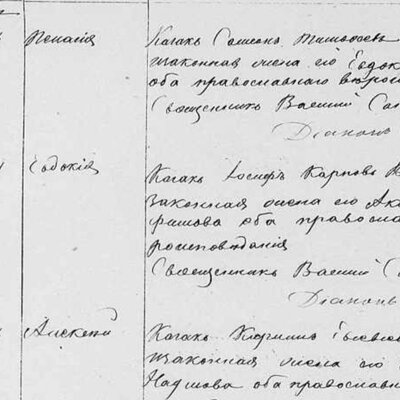 Пелагія
Казакъ Симеонъ Тимофеев
законная жена его Евдок
оба православнаго вероис
Священникъ Василий Са
Діаконъ
Евдокія
Казакъ Іосифъ Карповъ
Законная жена его Аку
фимова оба правосла
роисповѣданія
Священникъ Василий С
Діаконъ
Алексѣй
Казакъ
законная жена его
оба православн